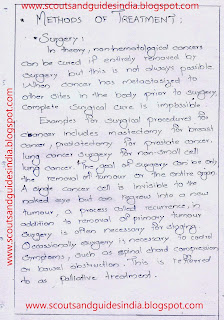 www.scoutsandguidesindia.blogspot.com
• METHODS OF TREATMENT :
• Surgery :
In theory, non-hematological cancers
can be cured if entirely removed by
Surgery but this is not always possible.
When cancer has metastasized to
other sites in the body prior to surgery,
Complete Surgical cure is impossible.
Examples for Surgical procedures for
Cancer includes mastectomy for breast
cancer, prostatectomy for prostate cancer,
lung cancer Surgery for non-small cell
lung cancer. The goal of Surgery can be only
the removal of tumour or the entire organ.
A single cancer cell is invisible to the
naked eye but can regrow into a new
tumour, a process called recurrence, in
addition to removal of primary tumour
Surgery is often necessary for staging.
Occasionally surgery is necessary to control
Symptoms, such as spinal chord compression
or bowel obstruction. This is referred
to as palliative treatment.
www.scoutsandguidesindia.blogspot.com
www.scoutsandguidesindia.blogspot.com
www.scoutsandguidesindia.blogspot.com